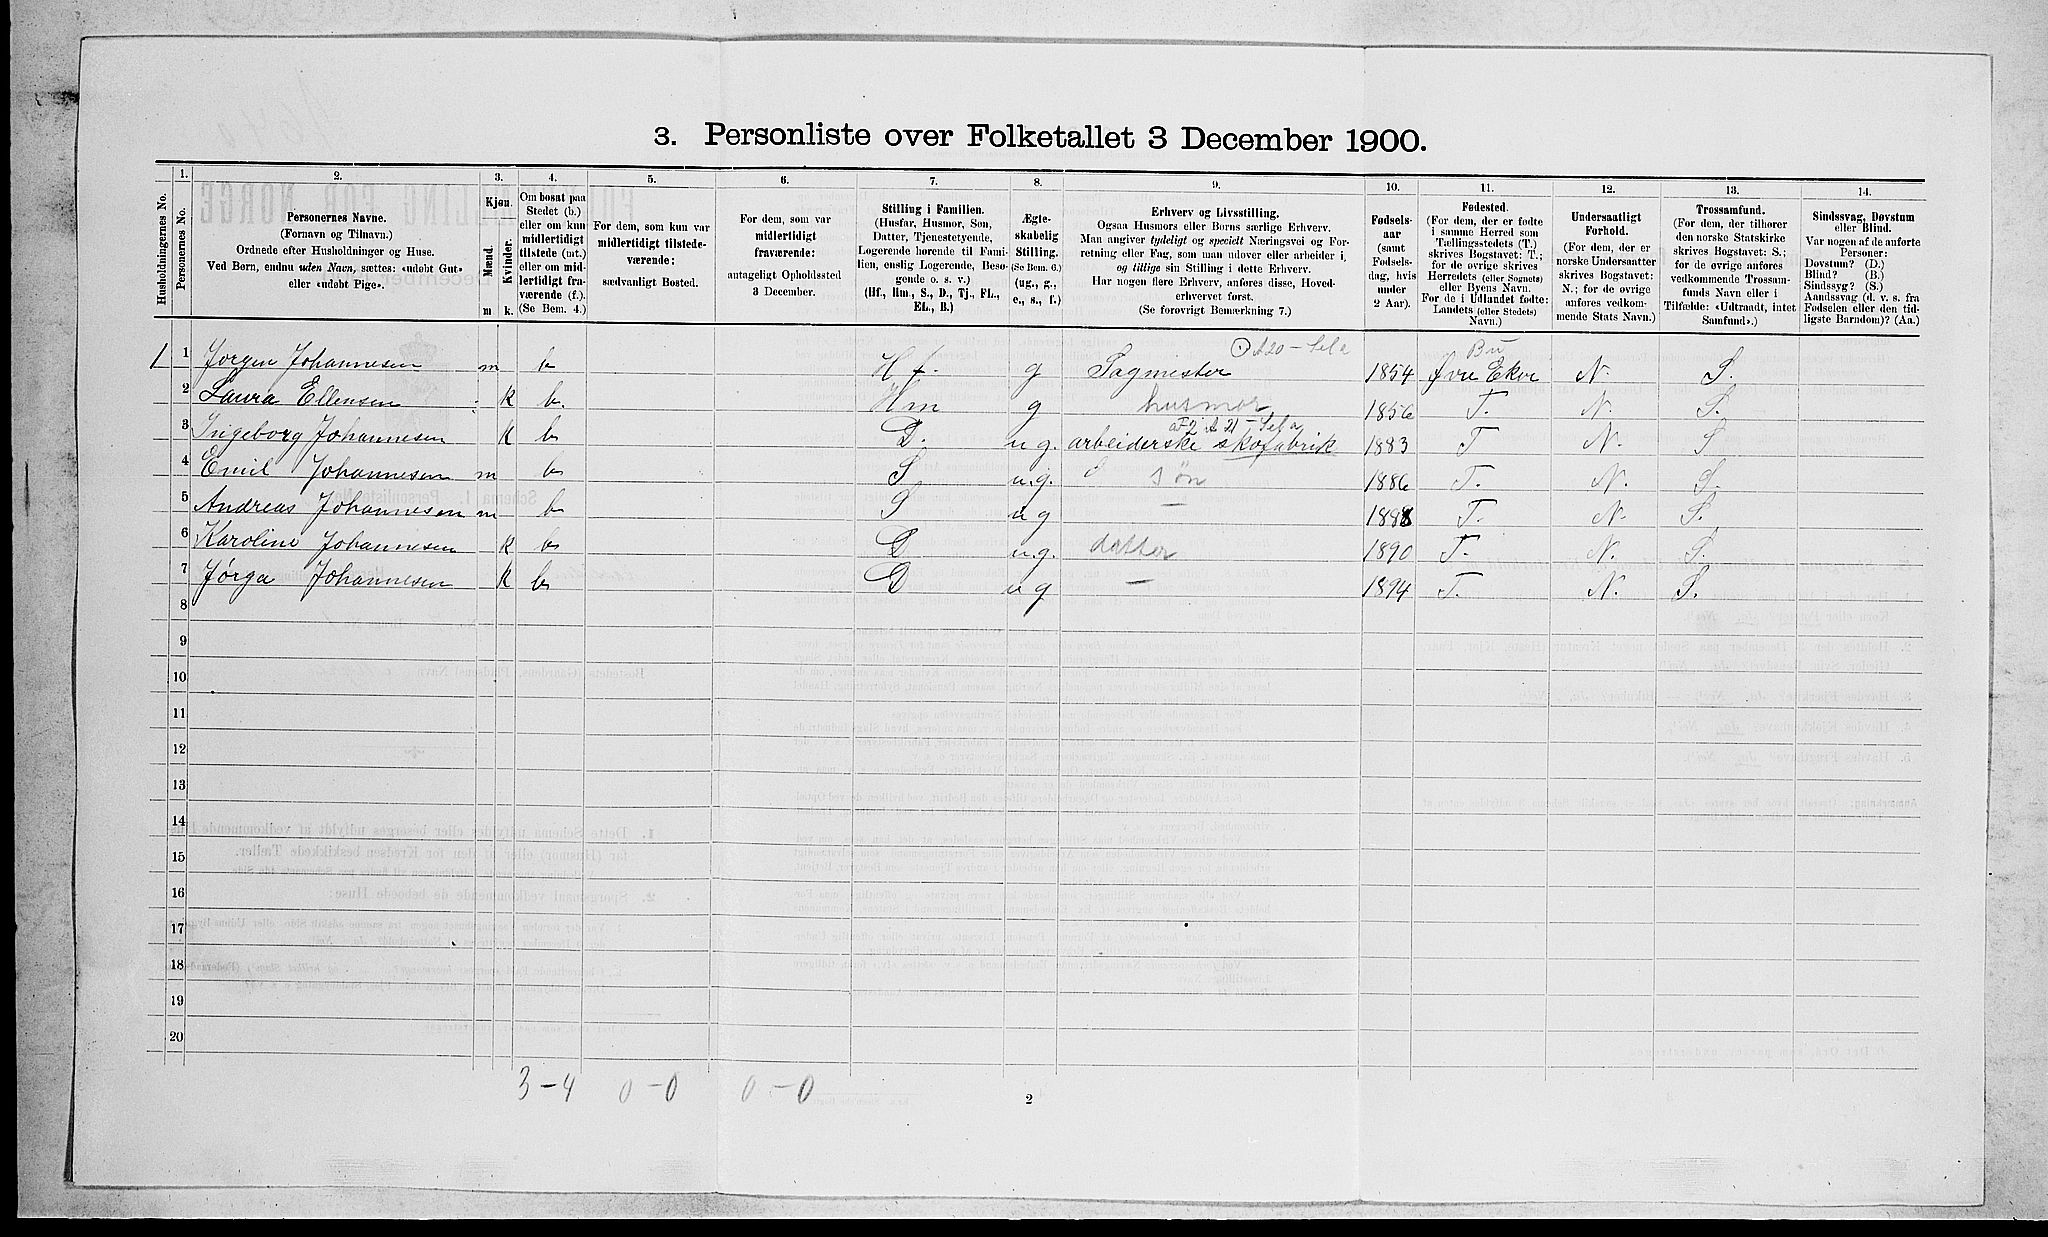 3. Personliste over Folketallet 3 December 1900.
Husholdningernes No.
1. Personernes No.
2. Personernes Navne.
(Fornavn og Tilnavn.)
Ordnede efter Husholdninger og Huse.
Ved Børn, endnu uden Navn, sættes: «udøbt Gut»
eller «udøbt Pige».
3. Kjøn.
Mænd. Kvinder.
m k.
4. Om bosat paa
Stedet (b.)
eller om kun
midlertidigt
tilstede (mt.)
eller om mid-
lertidigt fra-
værende (f.).
(Se Bem. 4.)
5. For dem, som kun var
midlertidigt tilstede-
værende:
sædvanligt Bosted.
6. For dem, som var
midlertidigt
fraværende:
antageligt Opholdssted
3 December.
7. Stilling i Familien.
(Husfar, Husmor, Søn,
Datter, Tjenestetyende,
Logerende hørende til Fami-
lien, enslig Logerende, Besø-
gende o. s. v.)
(Hf., Hm., S., D., Tj., FL.,
EL., B.)
8. Ægte-
skabelig
Stilling.
(Se Bem. 6.)
(ug., g.,
e., s., f.)
9. Erhverv og Livsstilling.
Ogsaa Husmors eller Børns særlige Erhverv.
Man angiver tydeligt og specielt Næringsvei og For-
retning eller Fag, som man udøver eller arbeider i,
og tillige sin Stilling i dette Erhverv.
Har nogen flere Erhverv, anføres disse, Hoved-
erhvervet først.
(Se forøvrigt Bemærkning 7.)
10. Fødsels-
aar
(samt
Fødsels-
dag, hvis
under
2 Aar).
11. Fødested.
(For dem, der er fødte
i samme Herred som
Tællingsstedets (T.)
skrives Bogstavet: T.;
for de øvrige skrives
Herredets (eller Sognets)
eller Byens Navn.
For de i Udlandet fødte:
Landets (eller Stedets)
Navn.)
12. Undersaatligt
Forhold.
(For dem, der er
norske Undersaatter
skrives Bogstavet:
N.; for de øvrige
anføres vedkom-
mende Stats Navn.)
13. Trossamfund.
(For dem, der tilhører
den norske Statskirke
skrives Bogstavet: S.;
for de øvrige anføres
vedkommende Trossam-
funds Navn eller i
Tilfælde: «Udtraadt, intet
Samfund».)
14. Sindssvag, Døvstum
eller Blind.
Var nogen af de anførte
Personer:
Døvstum? (D.)
Blind? (B.)
Sindssyg? (S.)
Aandssvag (d. v. s. fra
Fødselen eller den tid-
ligste Barndom)? (Aa.)
1 1 Jørgen Johannesen m b Hf. g Sagmester 1854 Øvre Eker Bu N. S.
2 Laura Ellensen k b. Hm g husmor 1856 T. N. S.
3 Ingeborg Johannesen k b D. ug. arbeiderske skofabrik 1883 T N. S
4 Emil Johannesen m b S u.g. søn 1886 T. N. S.
5 Andreas Johannesen m b S ug — 1888 T. N. S.
6 Karoline Johannesen k b D u.g. datter 1890 T. N. S.
7 Jørga Johannesen k b D ug — 1894 T. N. S.
8
9
10
11
12
13
14
15
16
17
18
19
20
3-4 0-0 0-0
2